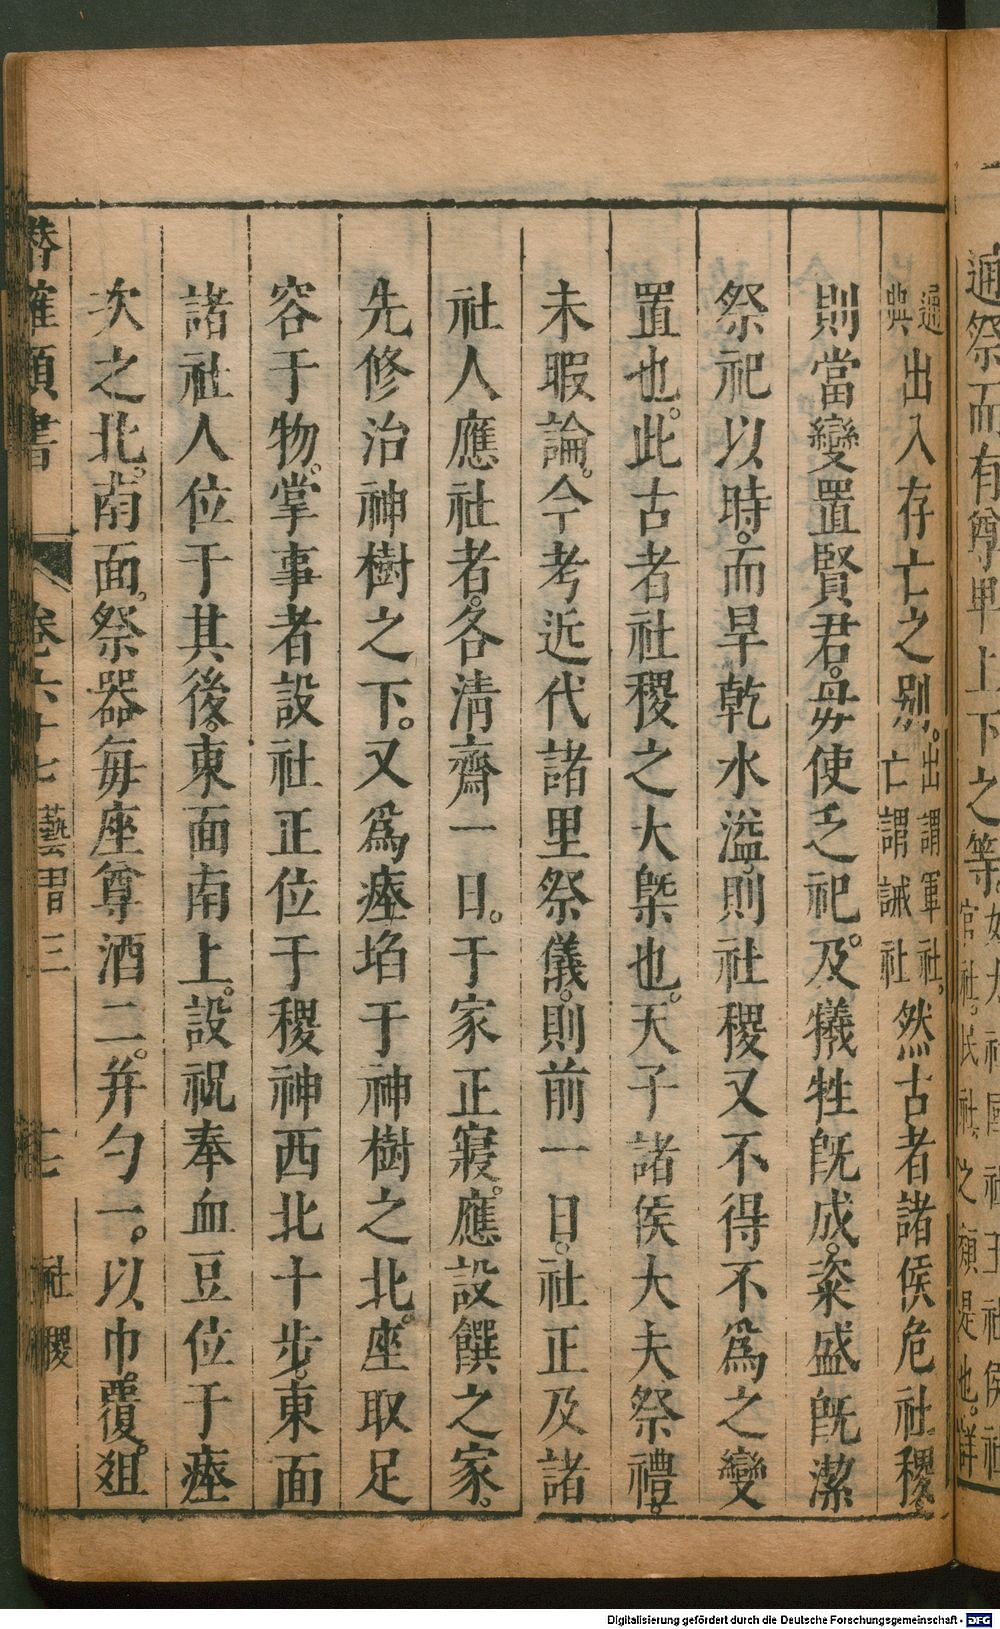 通祭而有尊卑上下之等如大社國社王社侯社官社民社之類是也詳
通典出入存亡之別出謂軍社亡謂誡社然古者諸侯危社稷
則當變置賢君毋使乏祀及犧牲旣成粢盛旣潔
祭祀以時而旱乾水溢則社稷又不得不爲之變
置也此古者社稷之大槩也天子諸侯大夫祭禮
未暇論今考近代諸里祭儀則前一日社正及諸
社人應社者各淸齋一日于家正寢應設饌之家
先修治神樹之下又爲瘞埳于神樹之北座取足
容于物掌事者設社正位于稷神西北十步東面
諸社人位于其後東面南上設祝奉血豆位于瘞
次之北南面祭器每座尊酒二并勺一以巾覆俎
潛確類書 卷六十七藝習三 十七 社稷
Digitalisierung gefördert durch die Deutsche Forschungsgemeinschaft - DFG